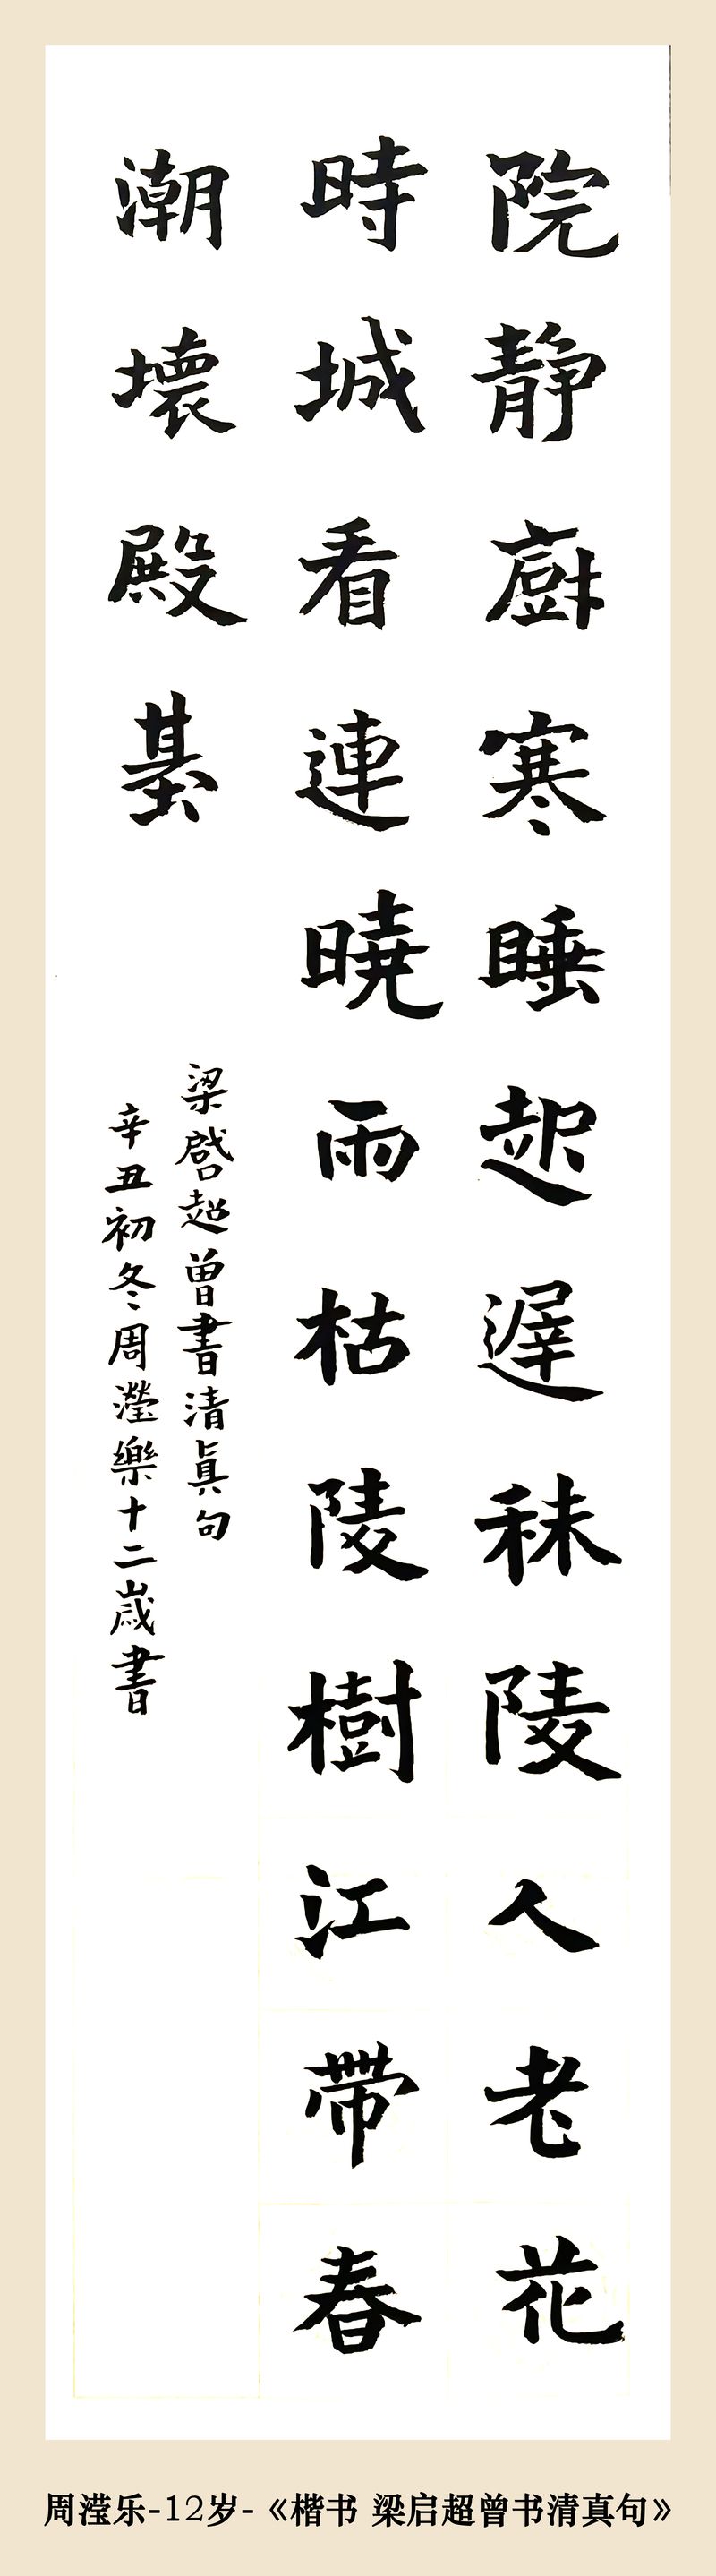 院静廚寒睡起遅秣陵人老花
時城看連曉雨枯陵樹江帶春
潮壞殿基
梁啓超曾書清真句
辛丑初冬周瀅樂十二歲書
周滢乐-12岁-《楷书 梁启超曾书清真句》